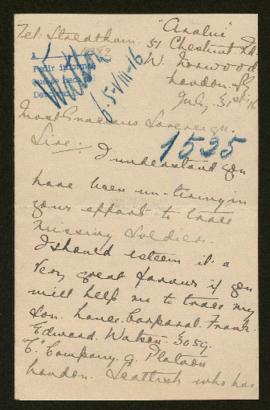 Tel. Streatham
"Analui"
51 Chestnut Rd
W. Norwood
London. S.
July, 31st 16
Watson
6.5-VIII-16
1535
Most Gracious Sovereign.
Sire:- I understand you
have been un-tiring in
your effort to trace
missing Soldiers
I should esteem it a
very great favour if you
will help me to trace my
Son. Lance. Corporal. Frank.
Edward Watson. 3059.
"C" Company. 9. Platoon
London. Scottish who has